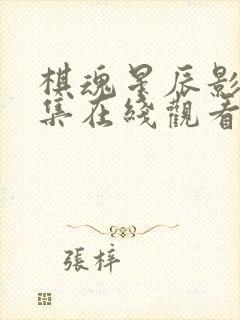 棋魂星辰影
集在綫觀看
張梓